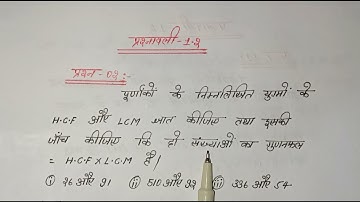 प्रश्नावली-1.2
प्रश्न-02:-
पूर्णांकों के निम्नलिखित युग्मों के
H.C.F और LCM ज्ञात कीजिए तथा इसकी
जाँच कीजिए कि दो संख्याओं का गुणनफल
= H.C.F X L.C.M है/
i 26 और 91 ii 510 और 92 iii 336 और 54